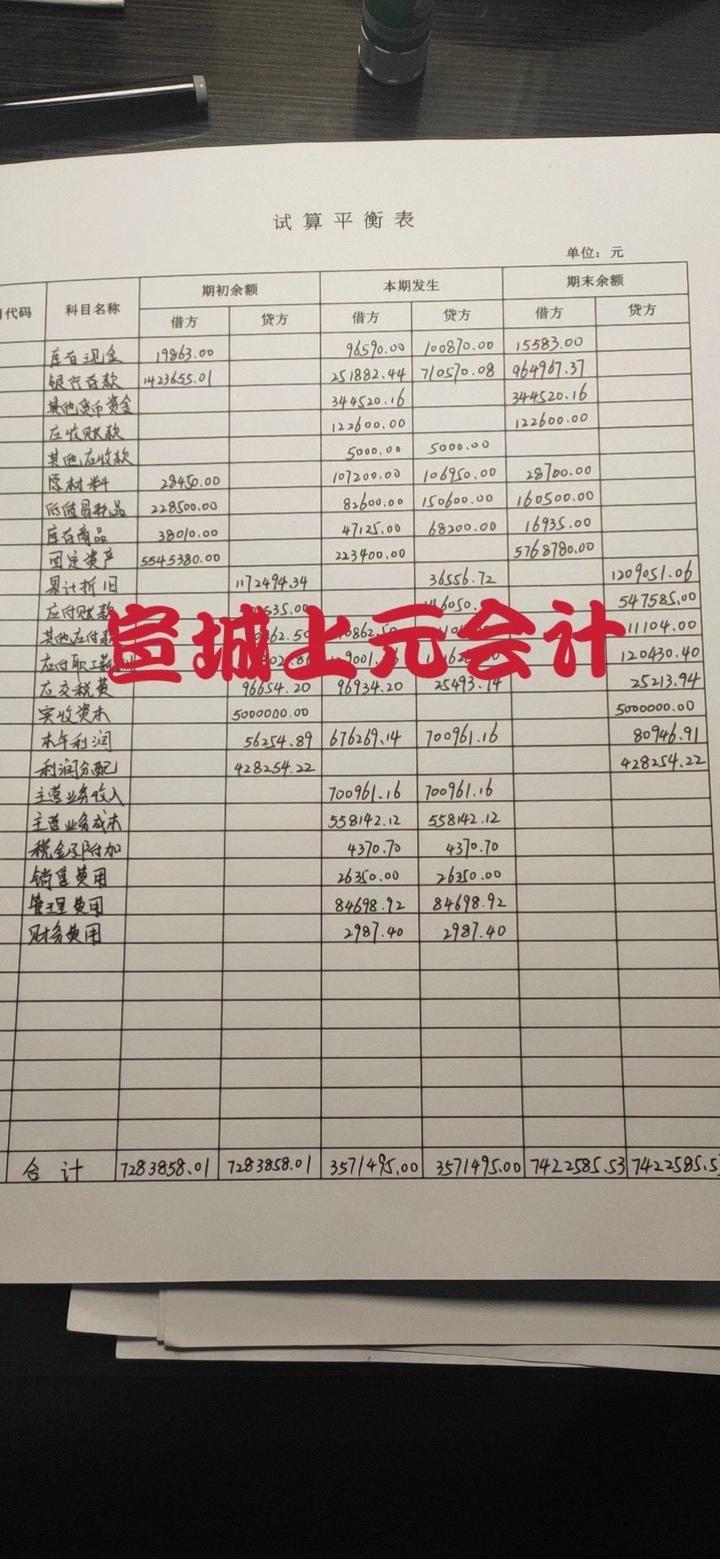 试算平衡表
单位：元
代码 科目名称 期初余额 本期发生 期末余额
借方 贷方 借方 贷方 借方 贷方
库存现金 19863.00 96590.00 100870.00 15583.00
银行存款 1423655.01 251882.44 710570.08 964967.37
其他货币资金 344520.16 344520.16
应收账款 122600.00 122600.00
其他应收款 5000.00 5000.00
原材料 28450.00 107200.00 106950.00 28700.00
低值易耗品 228500.00 82600.00 150600.00 160500.00
库存商品 38010.00 47125.00 68200.00 16935.00
固定资产 5545380.00 223400.00 5768780.00
累计折旧 1172494.34 36556.72 1209051.06
应付账款 547585.00
其他应付款 11104.00
应付职工薪 120430.40
应交税费 96654.20 96934.20 25493.94 25213.94
实收资本 5000000.00 5000000.00
本年利润 56254.89 676269.14 700961.16 80946.91
利润分配 428254.22 428254.22
主营业务收入 700961.16 700961.16
主营业务成本 558142.12 558142.12
税金及附加 4370.70 4370.70
销售费用 26350.00 26350.00
管理费用 84698.92 84698.92
财务费用 2987.40 2987.40
合计 7283858.01 7283858.01 3571495.00 3571495.00 7422585.53 7422585.5
宣城上元会计